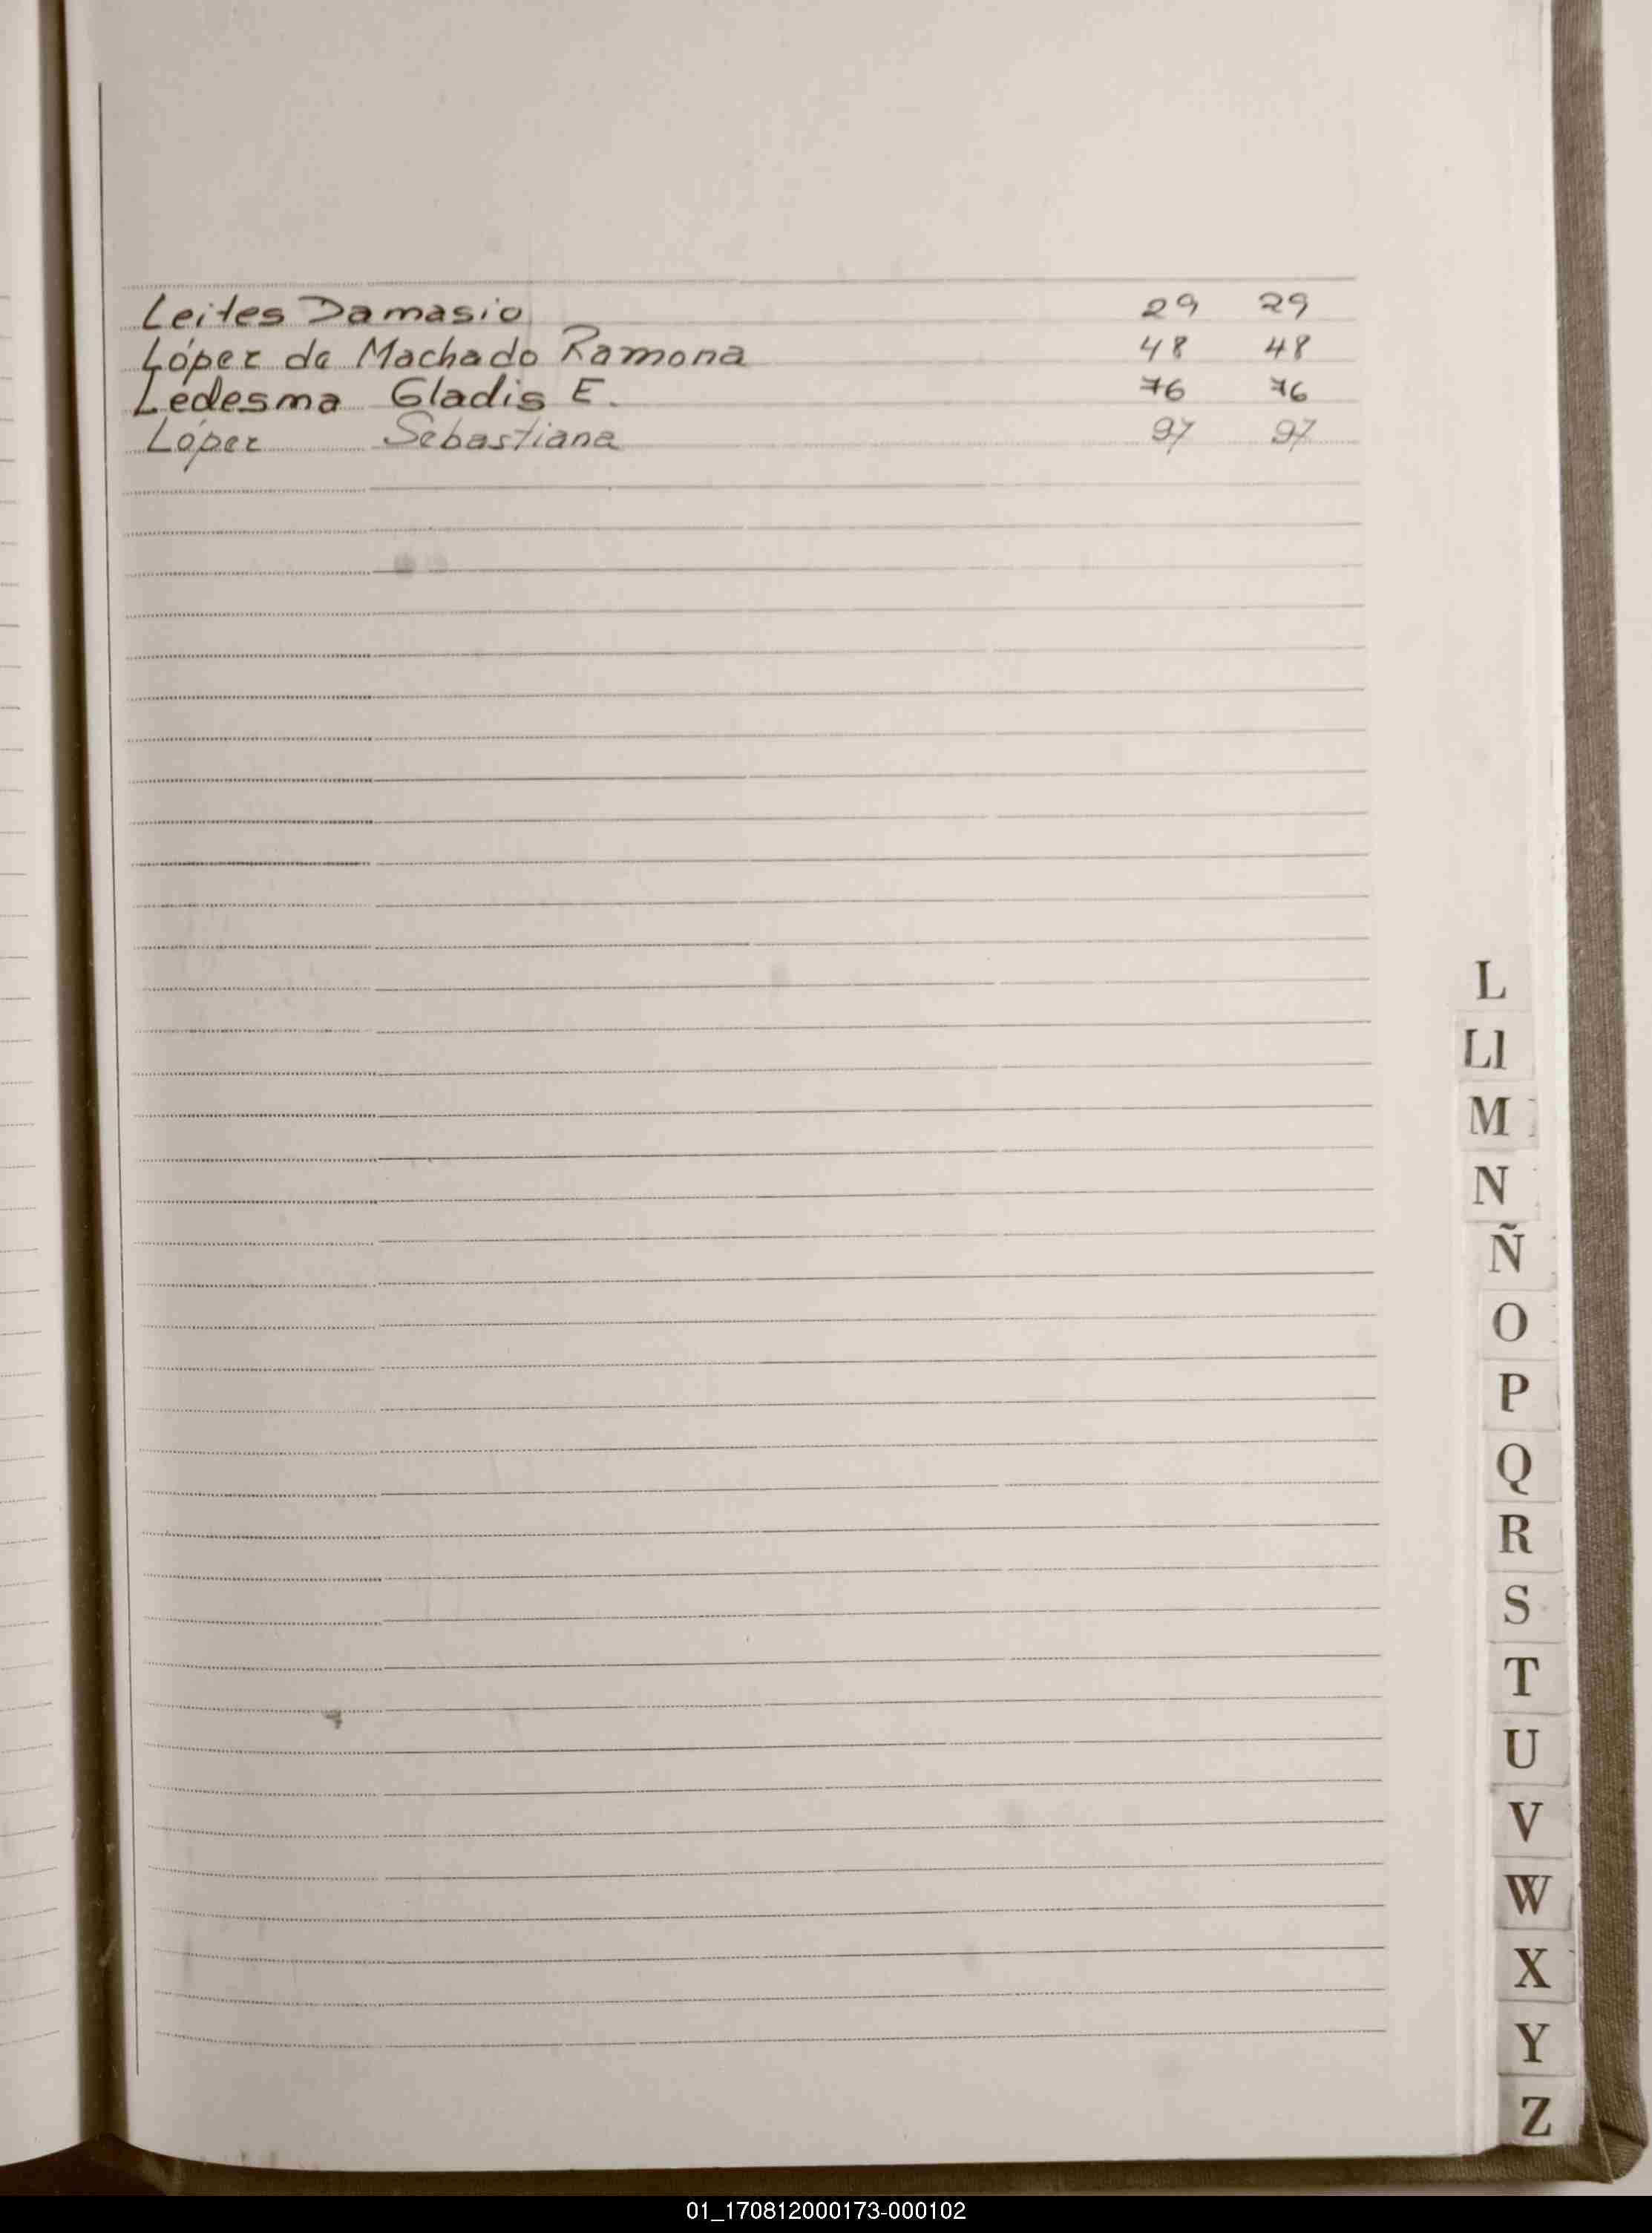 Leites Damasio 29 29
López de Machado Ramona 48 48
Ledesma Gladis E. 76 76
López Sebastiana 97 97
L
Ll
M
N
Ñ
O
P
Q
R
S
T
U
V
W
X
Y
Z
01_170812000173-000102